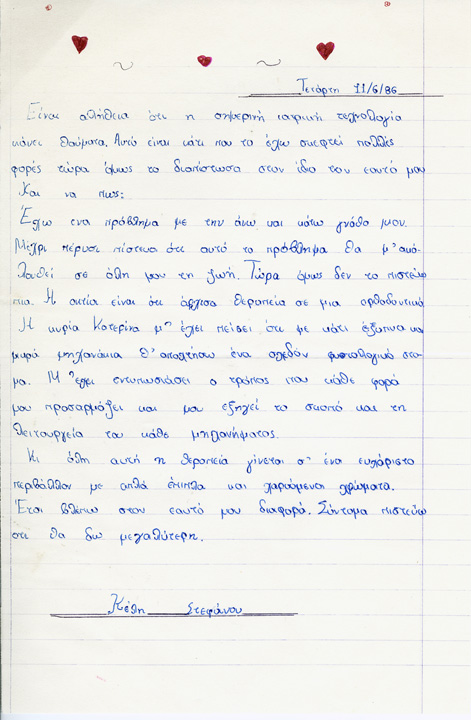 Τετάρτη 11/6/86
Είναι αλήθεια ότι η σημερινή ιατρική τεχνολογία
κάνει θαύματα. Αυτό είναι κάτι που το έχω σκεφτεί πολλές
φορές τώρα όμως το διαπίστωσα στον ίδιο τον εαυτό μου
Και να πως:
Έχω ενα πρόβλημα με την άνω και κάτω γνάθο μου.
Μέχρι πέρυσι πίστευα ότι αυτό το πρόβλημα θα μ' ακο-
λουθεί σε όλη μου τη ζωή. Τώρα όμως δεν το πιστεύω
πια. Η αιτία είναι ότι άρχισα θεραπεία σε μια ορθοδοντικό
Η κυρία Κατερίνα μ' έχει πείσει ότι με κάτι έξυπνα και
μικρά μηχανάκια θ' αποκτήσω ένα σχεδόν φυσιολογικό στο-
μα. Μ' έχει εντυπωσιάσει ο τρόπος που κάθε φορά
μου προσαρμόζει και μου εξηγεί το σκοπό και τη
λειτουργεία του κάθε μηχανήματος.
Κι όλη αυτή η θεραπεία γίνεται σ' ένα ευχάριστο
περιβάλλον με απλά έπιπλα και χαρούμενα χρώματα.
Έτσι βλέπω στον εαυτό μου διαφορά. Σύντομα πιστεύω
οτι θα δω μεγαλύτερη.
Κέλη Στεφάνου